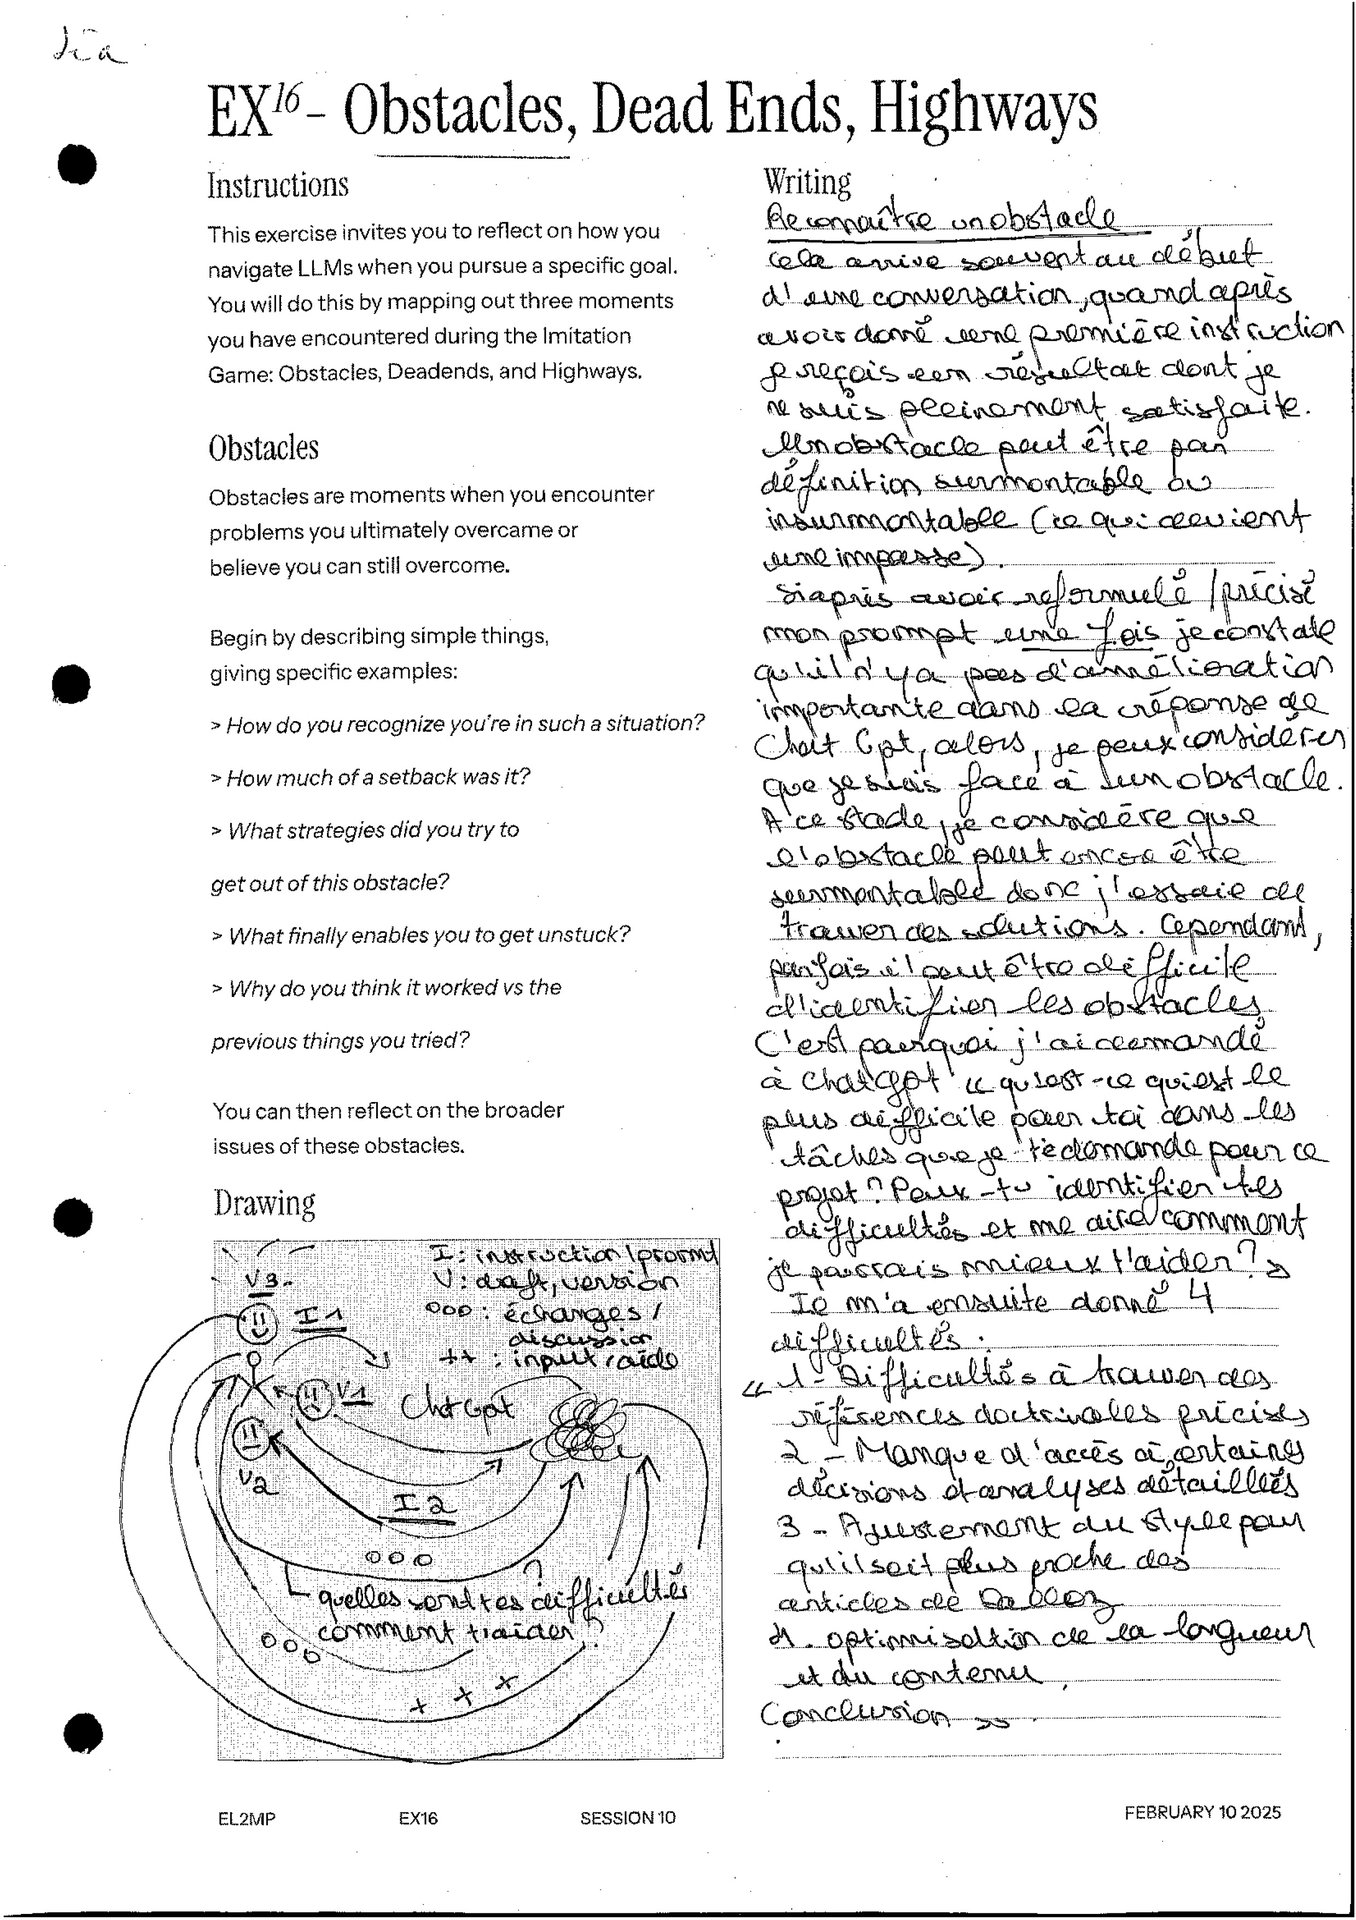 EX16 - Obstacles, Dead Ends, Highways
Instructions
This exercise invites you to reflect on how you
navigate LLMs when you pursue a specific goal.
You will do this by mapping out three moments
you have encountered during the Imitation
Game: Obstacles, Deadends, and Highways.
Obstacles
Obstacles are moments when you encounter
problems you ultimately overcame or
believe you can still overcome.
Begin by describing simple things,
giving specific examples:
> How do you recognize you're in such a situation?
> How much of a setback was it?
> What strategies did you try to
get out of this obstacle?
> What finally enables you to get unstuck?
> Why do you think it worked vs the
previous things you tried?
You can then reflect on the broader
issues of these obstacles.
Drawing
I : instruction/prompt
V : draft, version
ooo : échanges /
discussion
++ : input/aide
V3
I1
V1
ChatGpt
V2
I2
ooo
quelles sont tes difficultés
comment t'aider ?
ooo
+ + +
Writing
Reconnaître un obstacle
Cela arrive souvent au début
d'une conversation, quand après
avoir donné une première instruction
je reçois un résultat dont je
ne suis pleinement satisfaite.
Un obstacle peut être par
définition surmontable ou
insurmontable (ce qui devient
une impasse).
Si après avoir reformulé / précisé
mon prompt une fois je constate
qu'il n'y a pas d'amélioration
importante dans la réponse de
Chat Gpt, alors, je peux considérer
que je suis face à un obstacle.
A ce stade, je considère que
l'obstacle peut encore être
surmontable donc j'essaie de
trouver des solutions. Cependant,
parfois il peut être difficile
d'identifier les obstacles.
C'est pourquoi j'ai demandé
à ChatGpt « qu'est-ce qui est le
plus difficile pour toi dans les
tâches que je te demande pour ce
projet ? Peux-tu identifier tes
difficultés et me dire comment
je pourrais mieux t'aider ? »
Il m'a ensuite donné 4
difficultés :
« 1 - Difficultés à trouver des
références doctrinales précises
2 - Manque d'accès à certaines
décisions et analyses détaillées
3 - Ajustement du style pour
qu'il soit plus proche des
articles de Dalloz
4. optimisation de la longueur
et du contenu.
Conclusion »
EL2MP
EX16
SESSION 10
FEBRUARY 10 2025